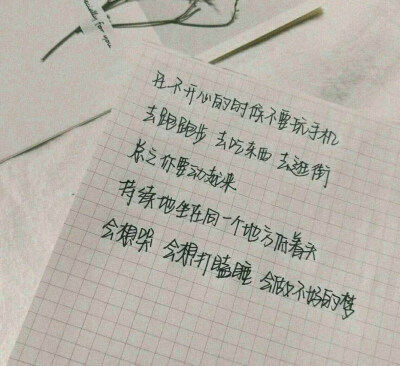 在不开心的时候不要玩手机
去跑跑步 去吃东西 去逛街
总之你要动起来
持续地坐在同一个地方低着头
会想哭 会想打瞌睡 会做不好的梦